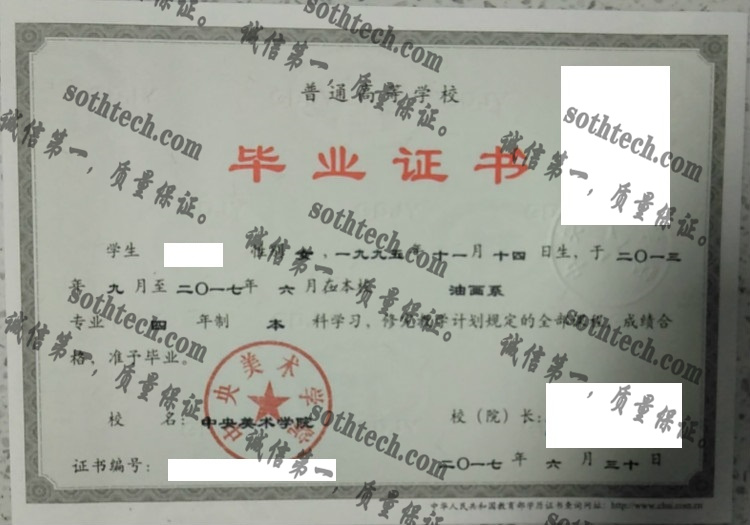 普通高等学校
毕业证书
学生 性别 女，一九九五年 十一月 十四 日生，于 二〇一三
年 九 月至 二〇一七年 六 月在本校 油画系
专业 四 年制 本 科学习，修完教学计划规定的全部课程，成绩合
格，准予毕业。
校 名：中央美术学院
校（院）长：
证书编号：
二〇一七 年 六 月 三十 日
中华人民共和国教育部学历证书查询网址：http://www.chsi.com.cn
中央美术学院
sothtech.com
诚信第一，质量保证。
sothtech.com
诚信第一，质量保证。
sothtech.com
诚信第一，质量保证。
sothtech.com
诚信第一，质量保证。
sothtech.com
诚信第一，质量保证。
sothtech.com
诚信第一，质量保证。
sothtech.com
诚信第一，质量保证。